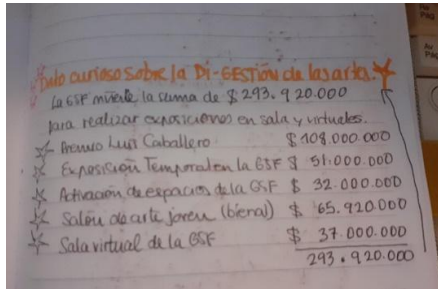 Dato curioso sobre la Di-GESTIÓN de las artes.
La GSF invierte la suma de $ 293.920.000
para realizar exposiciones en sala y virtuales.
Premio Luis Caballero $ 108.000.000
Exposición Temporal en la GSF $ 51.000.000
Activación de espacios de la GSF $ 32.000.000
Salón de arte joven (bienal) $ 65.920.000
Sala virtual de la GSF $ 37.000.000
293.920.000